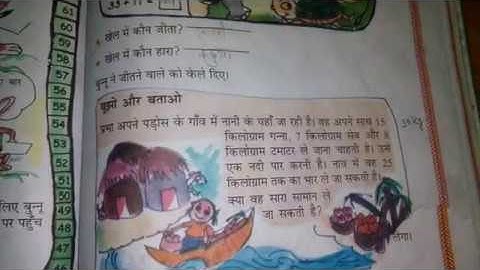 33 + 11 =
खेल में कौन जीता?
खेल में कौन हारा?
बुन्नू ने जीतने वाले को केले दिए।
बूझो और बताओ
प्रभा अपने पड़ोस के गाँव में नानी के यहाँ जा रही है। वह अपने साथ 15
किलोग्राम गन्ना, 7 किलोग्राम सेब और 8
किलोग्राम टमाटर ले जाना चाहती है। उसे
एक नदी पार करनी है। नाव में वह 25
किलोग्राम तक का भार ले जा सकती है।
क्या वह सारा सामान ले
जा सकती है?
लगा।
30 kg
61
60
59
58
57
56
55
54
53
52
51
50
49
48
47
46
लिए बुन्नू
पर पहुँच